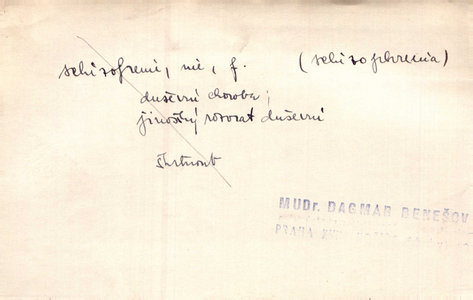 schizofrenie, nie, f. (schizophrenia)
duševní choroba;
jinošský rozvrat duševní
škrtnout
MUDr. DAGMAR BENEŠOV
PRAHA